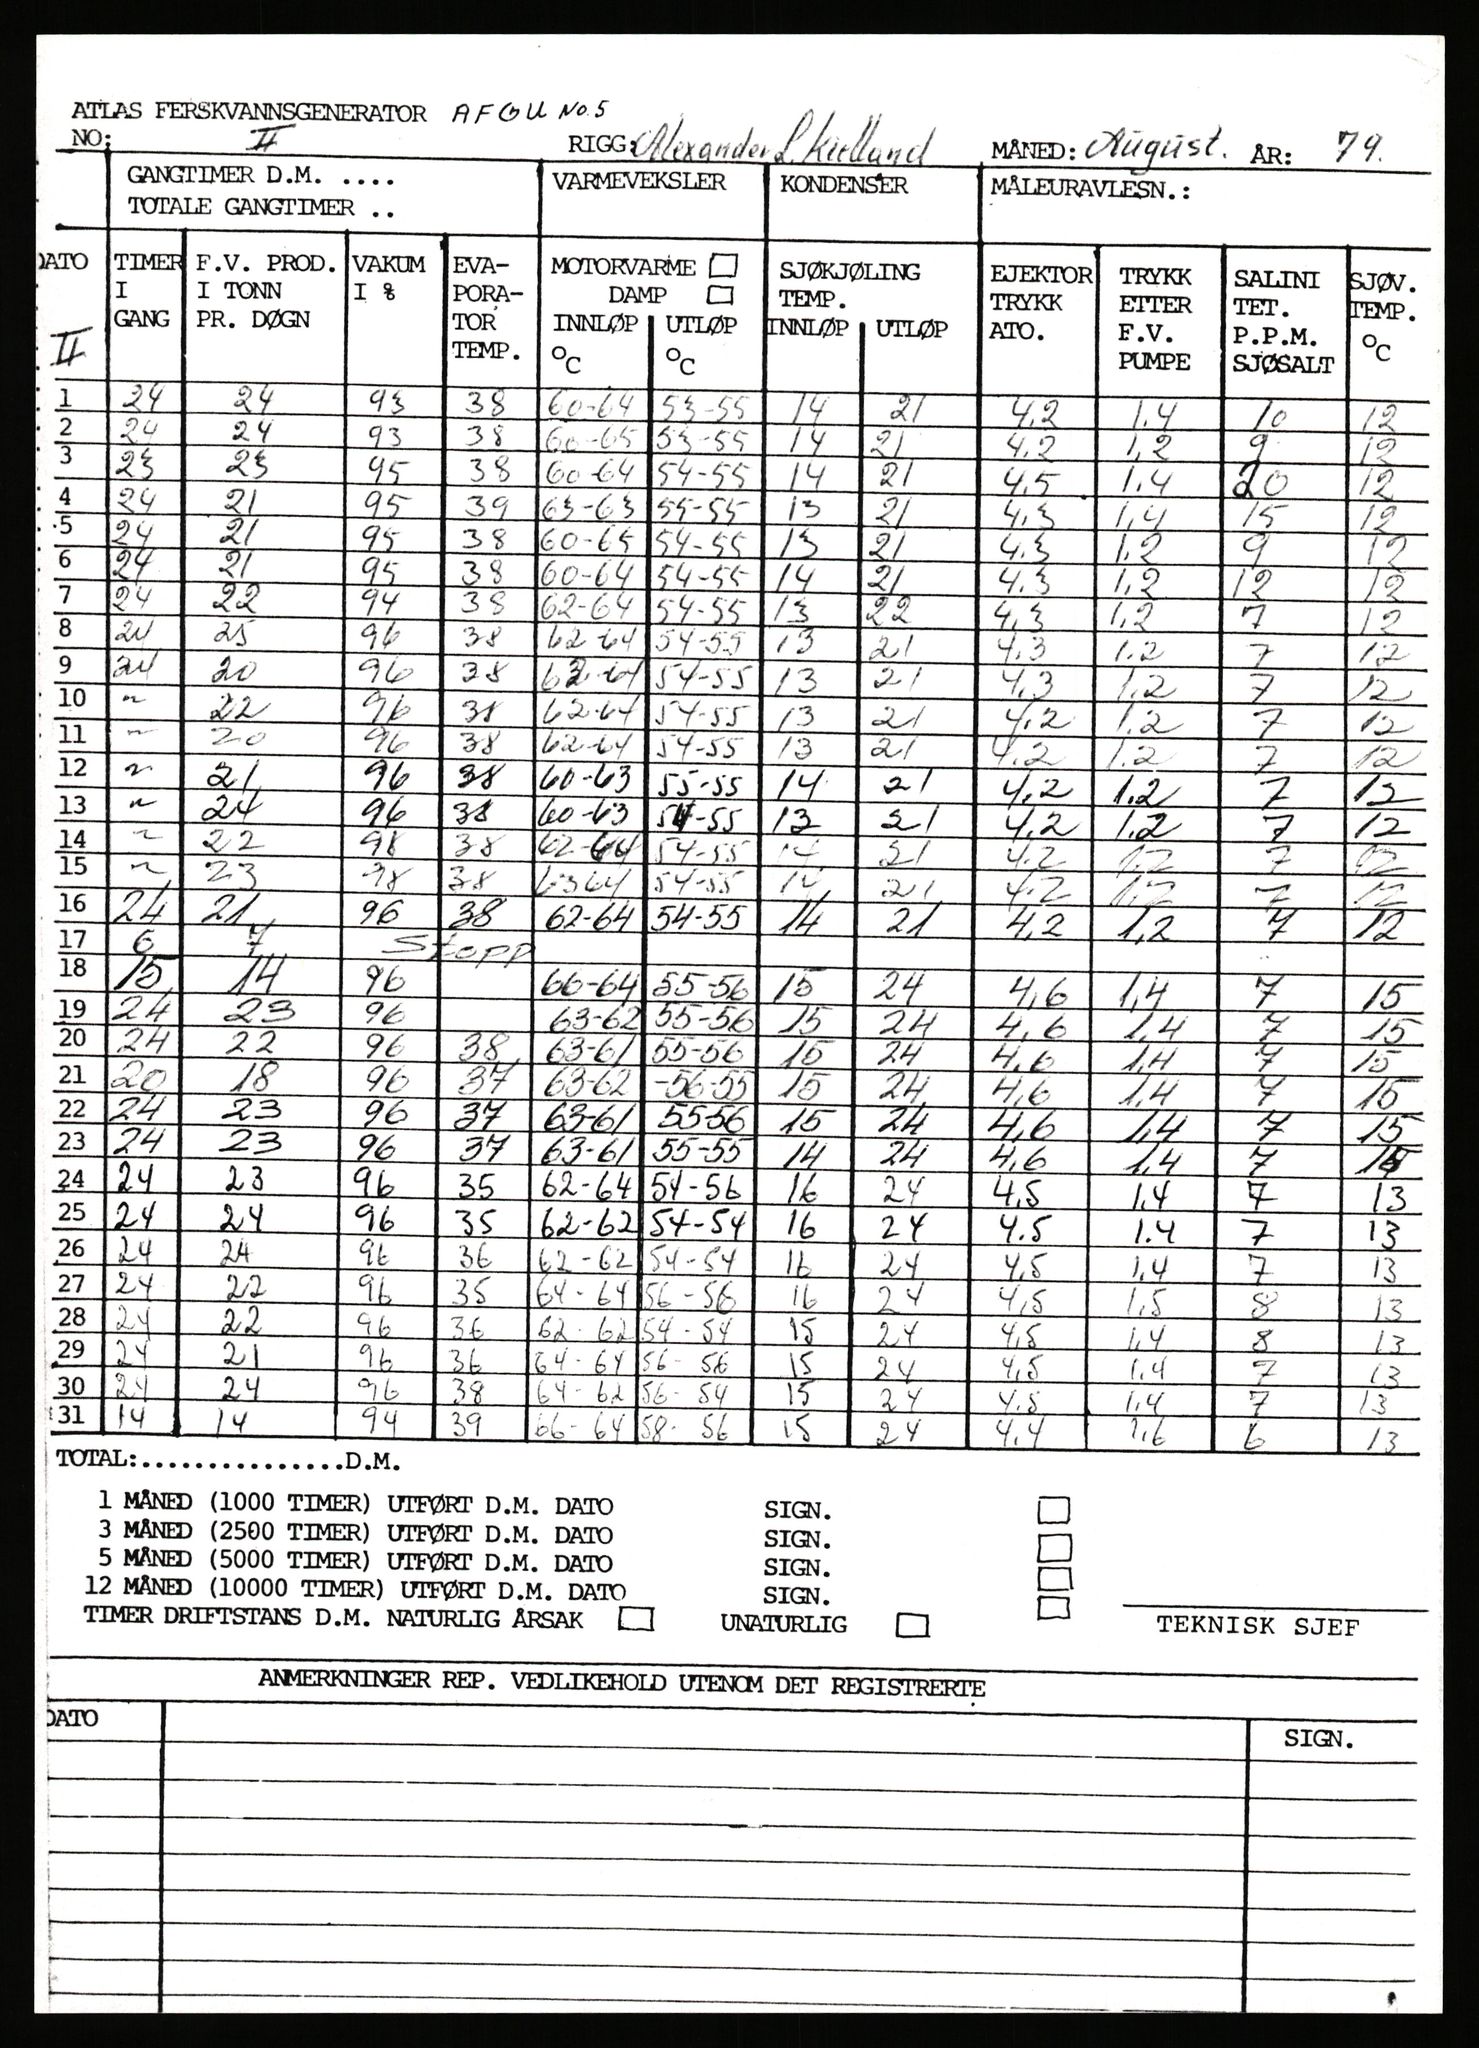 ATLAS FERSKVANNSGENERATOR AFGU No.5
NO: II RIGG: Alexander L. Kielland MÅNED: August. ÅR: 79.
GANGTIMER D.M. .... VARMEVEKSLER KONDENSER MÅLEURAVLESN.:
TOTALE GANGTIMER ..
DATO TIMER F.V. PROD. VAKUM EVA- MOTORVARME SJØKJØLING EJEKTOR TRYKK SALINI SJØV.
I I TONN I % PORA- DAMP TEMP. TRYKK ETTER TET. TEMP.
GANG PR. DØGN TOR INNLØP UTLØP INNLØP UTLØP ATO. F.V. P.P.M. °C
II TEMP. °C °C PUMPE SJØSALT
1 24 24 93 38 60-64 53-55 14 21 4,2 1,4 10 12
2 24 24 93 38 60-65 53-55 14 21 4,2 1,2 9 12
3 23 23 95 38 60-64 54-55 14 21 4,5 1,4 20 12
4 24 21 95 39 63-63 55-55 13 21 4,3 1,4 15 12
5 24 21 95 38 60-65 54-55 13 21 4,3 1,2 9 12
6 24 21 95 38 60-64 54-55 14 21 4,3 1,2 12 12
7 24 22 94 38 62-64 54-55 13 22 4,3 1,2 7 12
8 24 25 96 38 62-64 54-55 13 21 4,3 1,2 7 12
9 24 20 96 38 62-64 54-55 13 21 4,3 1,2 7 12
10 ~ 22 96 38 62-64 54-55 13 21 4,2 1,2 7 12
11 ~ 20 96 38 62-64 54-55 13 21 4,2 1,2 7 12
12 ~ 21 96 38 60-63 55-55 14 21 4,2 1,2 7 12
13 ~ 24 96 38 60-63 54-55 13 21 4,2 1,2 7 12
14 ~ 22 98 38 62-64 54-55 14 21 4,2 1,2 7 12
15 ~ 23 98 38 63 64 54-55 14 21 4,2 1,2 7 12
16 24 21 96 38 62-64 54-55 14 21 4,2 1,2 7 12
17 6 7 Stopp
18 15 14 96 66-64 55-56 15 24 4,6 1,4 7 15
19 24 23 96 63-62 55-56 15 24 4,6 1,4 7 15
20 24 22 96 38 63-61 55-56 15 24 4,6 1,4 7 15
21 20 18 96 37 63-62 -56-55 15 24 4,6 1,4 7 15
22 24 23 96 37 63-61 55-56 15 24 4,6 1,4 7 15
23 24 23 96 37 63-61 55-55 14 24 4,6 1,4 7 15
24 24 23 96 35 62-64 54-56 16 24 4,5 1,4 7 13
25 24 24 96 35 62-62 54-54 16 24 4.5 1.4 7 13
26 24 24 96 36 62-62 54-54 16 24 4,5 1,4 7 13
27 24 22 96 35 64-64 56-56 16 24 4,5 1,5 8 13
28 24 22 96 36 62-62 54-54 15 24 4,5 1,4 8 13
29 24 21 96 36 64-64 56-56 15 24 4,5 1,4 7 13
30 24 24 96 38 64-62 56-54 15 24 4.5 1,4 7 13
31 14 14 94 39 66-64 58-56 15 24 4.4 1,6 6 13
TOTAL:...............D.M.
1 MÅNED (1000 TIMER) UTFØRT D.M. DATO SIGN.
3 MÅNED (2500 TIMER) UTFØRT D.M. DATO SIGN.
5 MÅNED (5000 TIMER) UTFØRT D.M. DATO SIGN.
12 MÅNED (10000 TIMER) UTFØRT D.M. DATO SIGN.
TIMER DRIFTSTANS D.M. NATURLIG ÅRSAK UNATURLIG TEKNISK SJEF
ANMERKNINGER REP. VEDLIKEHOLD UTENOM DET REGISTRERTE
DATO SIGN.